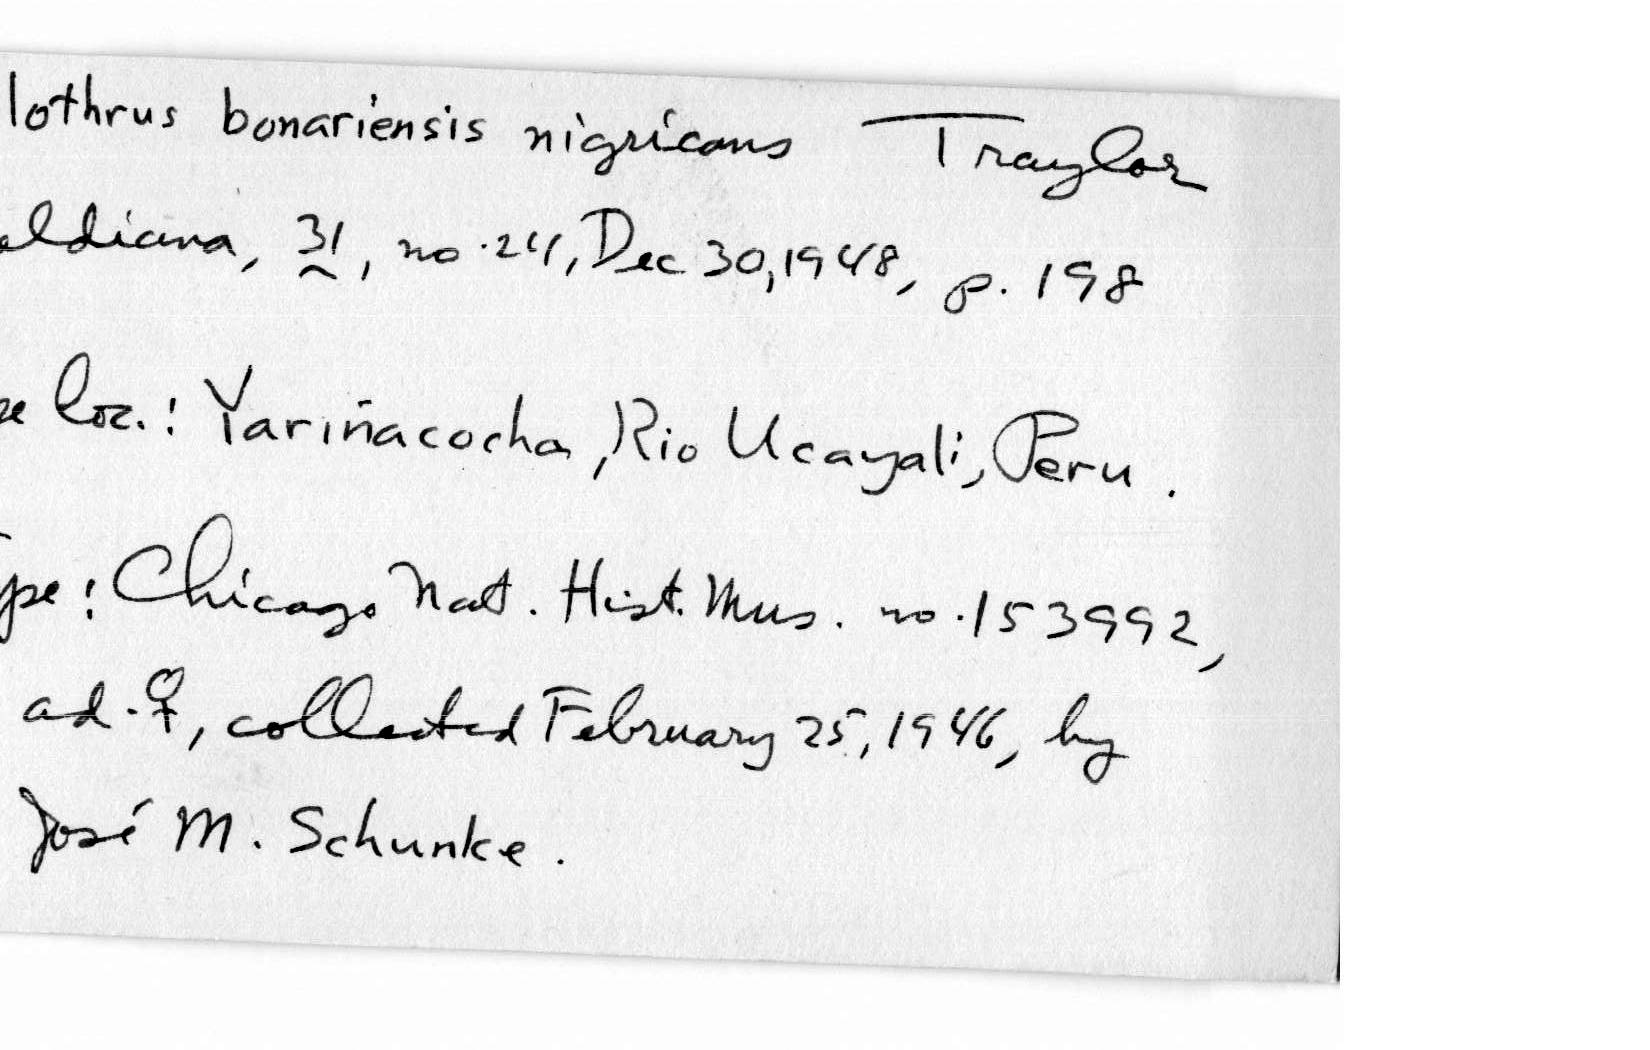 lothrus bonariensis nigricans Traylor
eldiana, 31, no. 24, Dec 30, 1948, p. 198
pe loc.: Yariñacocha, Rio Ucayali, Peru.
ype: Chicago Nat. Hist. Mus. no. 153992,
ad. ♀, collected February 25, 1946, by
José M. Schunke.